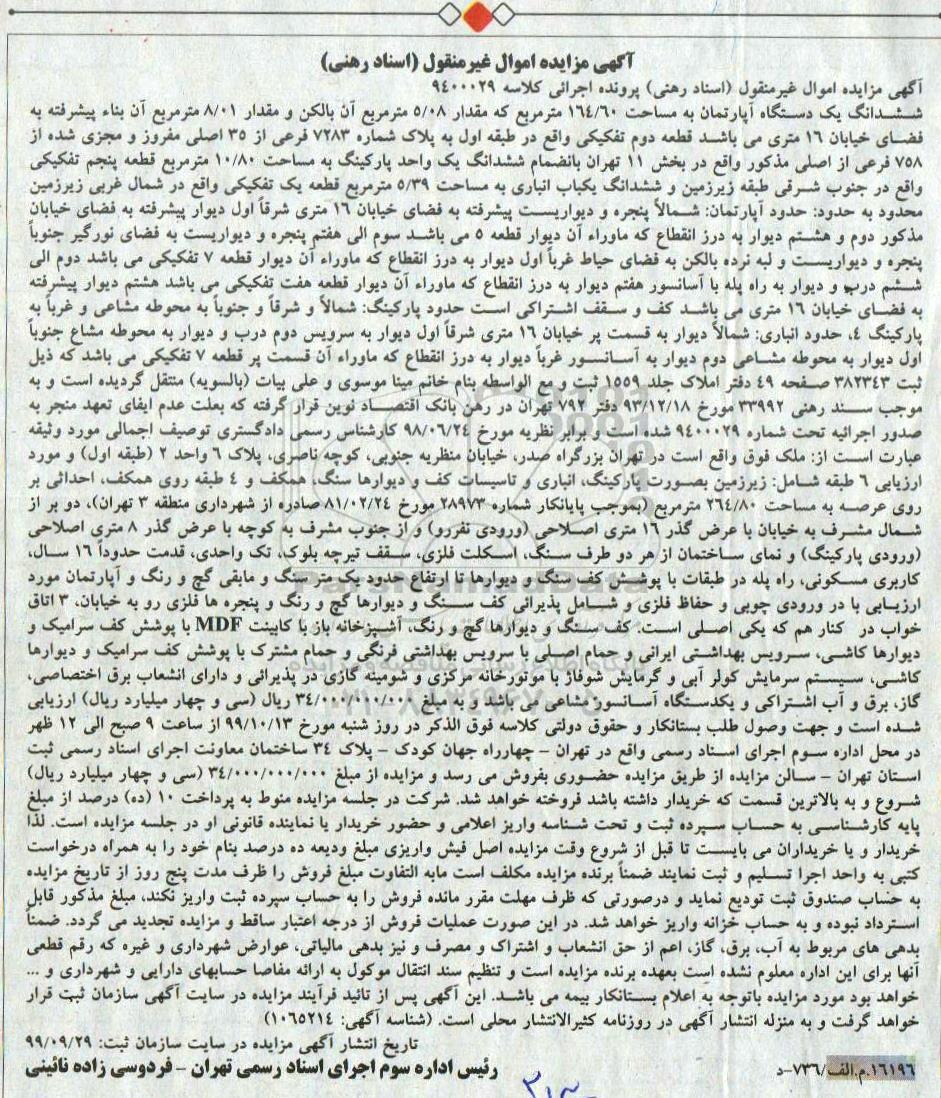 آگهی مزایده اموال غیرمنقول (اسناد رهنی)
آگهی مزایده اموال غیرمنقول (اسناد رهنی) پرونده اجرائی کلاسه ۹۴۰۰۰۲۹
ششدانگ یک دستگاه آپارتمان به مساحت ۱۶۴/۶۰ مترمربع که مقدار ۵/۰۸ مترمربع آن بالکن و مقدار ۸/۰۱ مترمربع آن بناء پیشرفته به
فضای خیابان ۱۶ متری می باشد قطعه دوم تفکیکی واقع در طبقه اول به پلاک شماره ۷۲۸۳ فرعی از ۳۵ اصلی مفروز و مجزی شده از
۷۵۸ فرعی از اصلی مذکور واقع در بخش ۱۱ تهران بانضمام ششدانگ یک واحد پارکینگ به مساحت ۱۰/۸۰ مترمربع قطعه پنجم تفکیکی
واقع در جنوب شرقی طبقه زیرزمین و ششدانگ یکباب انباری به مساحت ۵/۳۹ مترمربع قطعه یک تفکیکی واقع در شمال غربی زیرزمین
محدود به حدود: حدود آپارتمان: شمالاً پنجره و دیواریست پیشرفته به فضای خیابان ۱۶ متری شرقاً اول دیوار پیشرفته به فضای خیابان
مذکور دوم و هشتم دیوار به درز انقطاع که ماوراء آن دیوار قطعه ۵ می باشد سوم الی هفتم پنجره و دیواریست به فضای نورگیر جنوباً
پنجره و دیواریست و لبه نرده بالکن به فضای حیاط غرباً اول دیوار به درز انقطاع که ماوراء آن دیوار قطعه ۷ تفکیکی می باشد دوم الی
ششم درب و دیوار به راه پله با آسانسور هفتم دیوار به درز انقطاع که ماوراء آن دیوار قطعه هفت تفکیکی می باشد هشتم دیوار پیشرفته
به فضای خیابان ۱۶ متری می باشد کف و سقف اشتراکی است حدود پارکینگ: شمالاً و شرقاً و جنوباً به محوطه مشاعی و غرباً به
پارکینگ ۴، حدود انباری: شمالاً دیوار به قسمت پر خیابان ۱۶ متری شرقاً اول دیوار به سرویس دوم درب و دیوار به محوطه مشاع جنوباً
اول دیوار به محوطه مشاعی دوم دیوار به آسانسور غرباً دیوار به درز انقطاع که ماوراء آن قسمت پر قطعه ۷ تفکیکی می باشد که ذیل
ثبت ۳۸۲۳۴۳ صفحه ۴۹ دفتر املاک جلد ۱۵۵۹ ثبت و مع الواسطه بنام خانم مینا موسوی و علی بیات (بالسویه) منتقل گردیده است و به
موجب سند رهنی ۳۳۹۹۲ مورخ ۹۳/۱۲/۱۸ دفتر ۷۹۲ تهران در رهن بانک اقتصاد نوین قرار گرفته که بعلت عدم ایفای تعهد منجر به
صدور اجرائیه تحت شماره ۹۴۰۰۰۲۹ شده است و برابر نظریه مورخ ۹۸/۰۶/۲۴ کارشناس رسمی دادگستری توصیف اجمالی مورد وثیقه
عبارت است از: ملک فوق واقع است در تهران بزرگراه صدر، خیابان منظریه جنوبی، کوچه ناصری، پلاک ۶ واحد ۲ (طبقه اول) و مورد
ارزیابی ۶ طبقه شامل: زیرزمین بصورت پارکینگ، انباری و تاسیسات کف و دیوارها سنگ، همکف و ۴ طبقه روی همکف، احداثی بر
روی عرصه به مساحت ۲۶۴/۸۰ مترمربع (بموجب پایانکار شماره ۲۸۹۷۳ مورخ ۸۱/۰۲/۲۴ صادره از شهرداری منطقه ۳ تهران)، دو بر از
شمال مشرف به خیابان با عرض گذر ۱۶ متری اصلاحی (ورودی نفررو) و از جنوب مشرف به کوچه با عرض گذر ۸ متری اصلاحی
(ورودی پارکینگ) و نمای ساختمان از هر دو طرف سنگ، اسکلت فلزی، سقف تیرچه بلوک، تک واحدی، قدمت حدوداً ۱۶ سال،
کاربری مسکونی، راه پله در طبقات با پوشش کف سنگ و دیوارها تا ارتفاع حدود یک متر سنگ و مابقی گچ و رنگ و آپارتمان مورد
ارزیابی با در ورودی چوبی و حفاظ فلزی و شامل پذیرائی کف سنگ و دیوارها گچ و رنگ و پنجره ها فلزی رو به خیابان، ۳ اتاق
خواب در کنار هم که یکی اصلی است. کف سنگ و دیوارها گچ و رنگ، آشپزخانه باز با کابینت MDF با پوشش کف سرامیک و
دیوارها کاشی، سرویس بهداشتی ایرانی و حمام اصلی با سرویس بهداشتی فرنگی و حمام مشترک با پوشش کف سرامیک و دیوارها
کاشی، سیستم سرمایش کولر آبی و گرمایش شوفاژ با موتورخانه مرکزی و شومینه گازی در پذیرائی و دارای انشعاب برق اختصاصی،
گاز، برق و آب اشتراکی و یکدستگاه آسانسور مشاعی می باشد و به مبلغ ۳۴/۰۰۰/۰۰۰/۰۰۰ ریال (سی و چهار میلیارد ریال) ارزیابی
شده است و جهت وصول طلب بستانکار و حقوق دولتی کلاسه فوق الذکر در روز شنبه مورخ ۹۹/۱۰/۱۳ از ساعت ۹ صبح الی ۱۲ ظهر
در محل اداره سوم اجرای اسناد رسمی واقع در تهران – چهارراه جهان کودک – پلاک ۳۴ ساختمان معاونت اجرای اسناد رسمی ثبت
استان تهران – سالن مزایده از طریق مزایده حضوری بفروش می رسد و مزایده از مبلغ ۳۴/۰۰۰/۰۰۰/۰۰۰ (سی و چهار میلیارد ریال)
شروع و به بالاترین قسمت که خریدار داشته باشد فروخته خواهد شد. شرکت در جلسه مزایده منوط به پرداخت ۱۰ (ده) درصد از مبلغ
پایه کارشناسی به حساب سپرده ثبت و تحت شناسه واریز اعلامی و حضور خریدار یا نماینده قانونی او در جلسه مزایده است. لذا
خریدار و یا خریداران می بایست تا قبل از شروع وقت مزایده اصل فیش واریزی مبلغ ودیعه ده درصد بنام خود را به همراه درخواست
کتبی به واحد اجرا تسلیم و ثبت نمایند ضمناً برنده مزایده مکلف است مابه التفاوت مبلغ فروش را ظرف مدت پنج روز از تاریخ مزایده
به حساب صندوق ثبت تودیع نماید و درصورتی که ظرف مهلت مقرر مانده فروش را به حساب سپرده ثبت واریز نکند، مبلغ مذکور قابل
استرداد نبوده و به حساب خزانه واریز خواهد شد. در این صورت عملیات فروش از درجه اعتبار ساقط و مزایده تجدید می گردد. ضمناً
بدهی های مربوط به آب، برق، گاز، اعم از حق انشعاب و اشتراک و مصرف و نیز بدهی مالیاتی، عوارض شهرداری و غیره که رقم قطعی
آنها برای این اداره معلوم نشده است بعهده برنده مزایده است و تنظیم سند انتقال موکول به ارائه مفاصا حسابهای دارایی و شهرداری و ...
خواهد بود مورد مزایده باتوجه به اعلام بستانکار بیمه می باشد. این آگهی پس از تائید فرآیند مزایده در سایت آگهی سازمان ثبت قرار
خواهد گرفت و به منزله انتشار آگهی در روزنامه کثیرالانتشار محلی است. (شناسه آگهی: ۱۰۶۵۲۱۴)
تاریخ انتشار آگهی مزایده در سایت سازمان ثبت: ۹۹/۰۹/۲۹
رئیس اداره سوم اجرای اسناد رسمی تهران – فردوسی زاده نائینی
۱۶۱۹۶.م.الف/۷۳۶-د